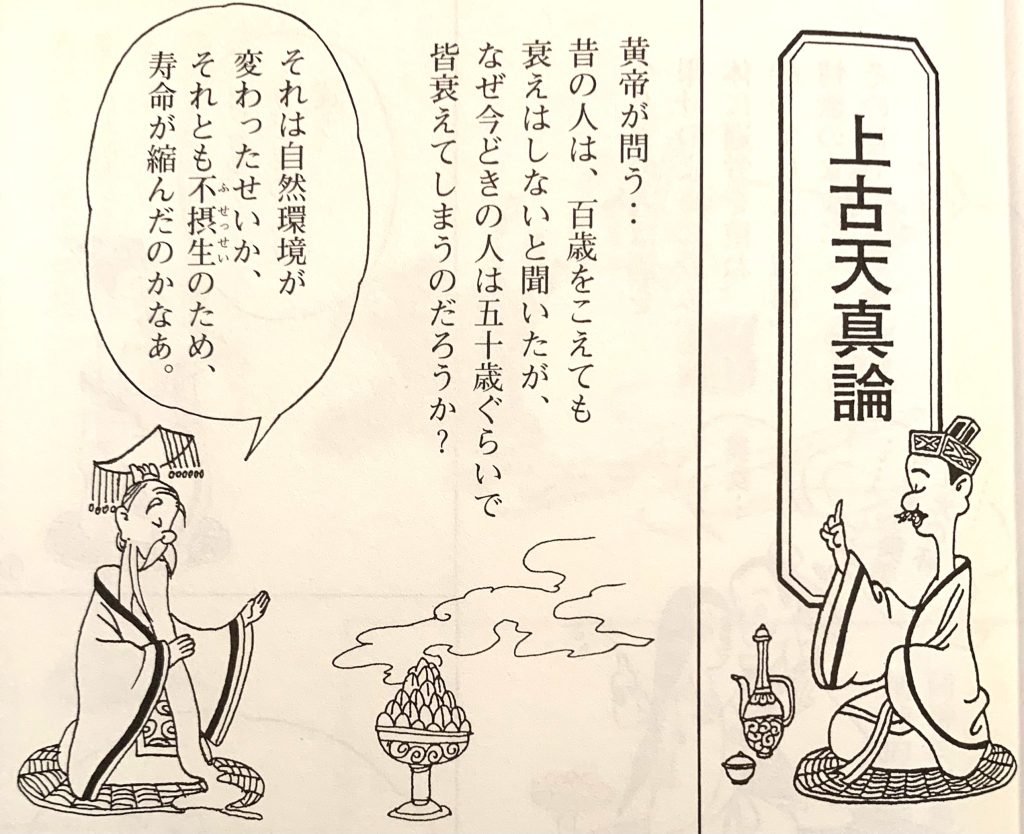 上古天真論
黄帝が問う‥
昔の人は、百歳をこえても
衰えはしないと聞いたが、
なぜ今どきの人は五十歳ぐらいで
皆衰えてしまうのだろうか?
それは自然環境が
変わったせいか、
それとも不摂生のため、
ふせっせい
寿命が縮んだのかなあ。